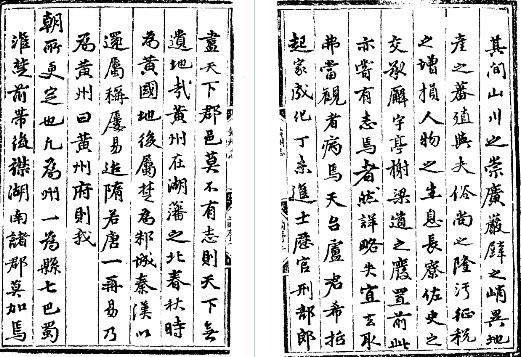 盡天下郡邑莫不有志則天下無
遺地哉黃州在湖藩之北春秋時
為黃國地後屬楚為邾城秦漢以
還屬稱屢易迨隋若唐一再易乃
為黃州曰黃州府則我
朝所更定也凡為州一為縣七巴蜀
淮楚前帶後襟湖南諸郡莫加焉
其間山川之崇廣巖壁之峭異地
產之蕃植與夫俗尚之隆污征稅
之增損人物之生息長寮佐史之
交承廨宇亭榭梁道之廢置前此
亦嘗有志焉者然詳略失宜去取
弗當觀者病焉天台盧君希哲
起家成化丁未進士歷官刑部郎